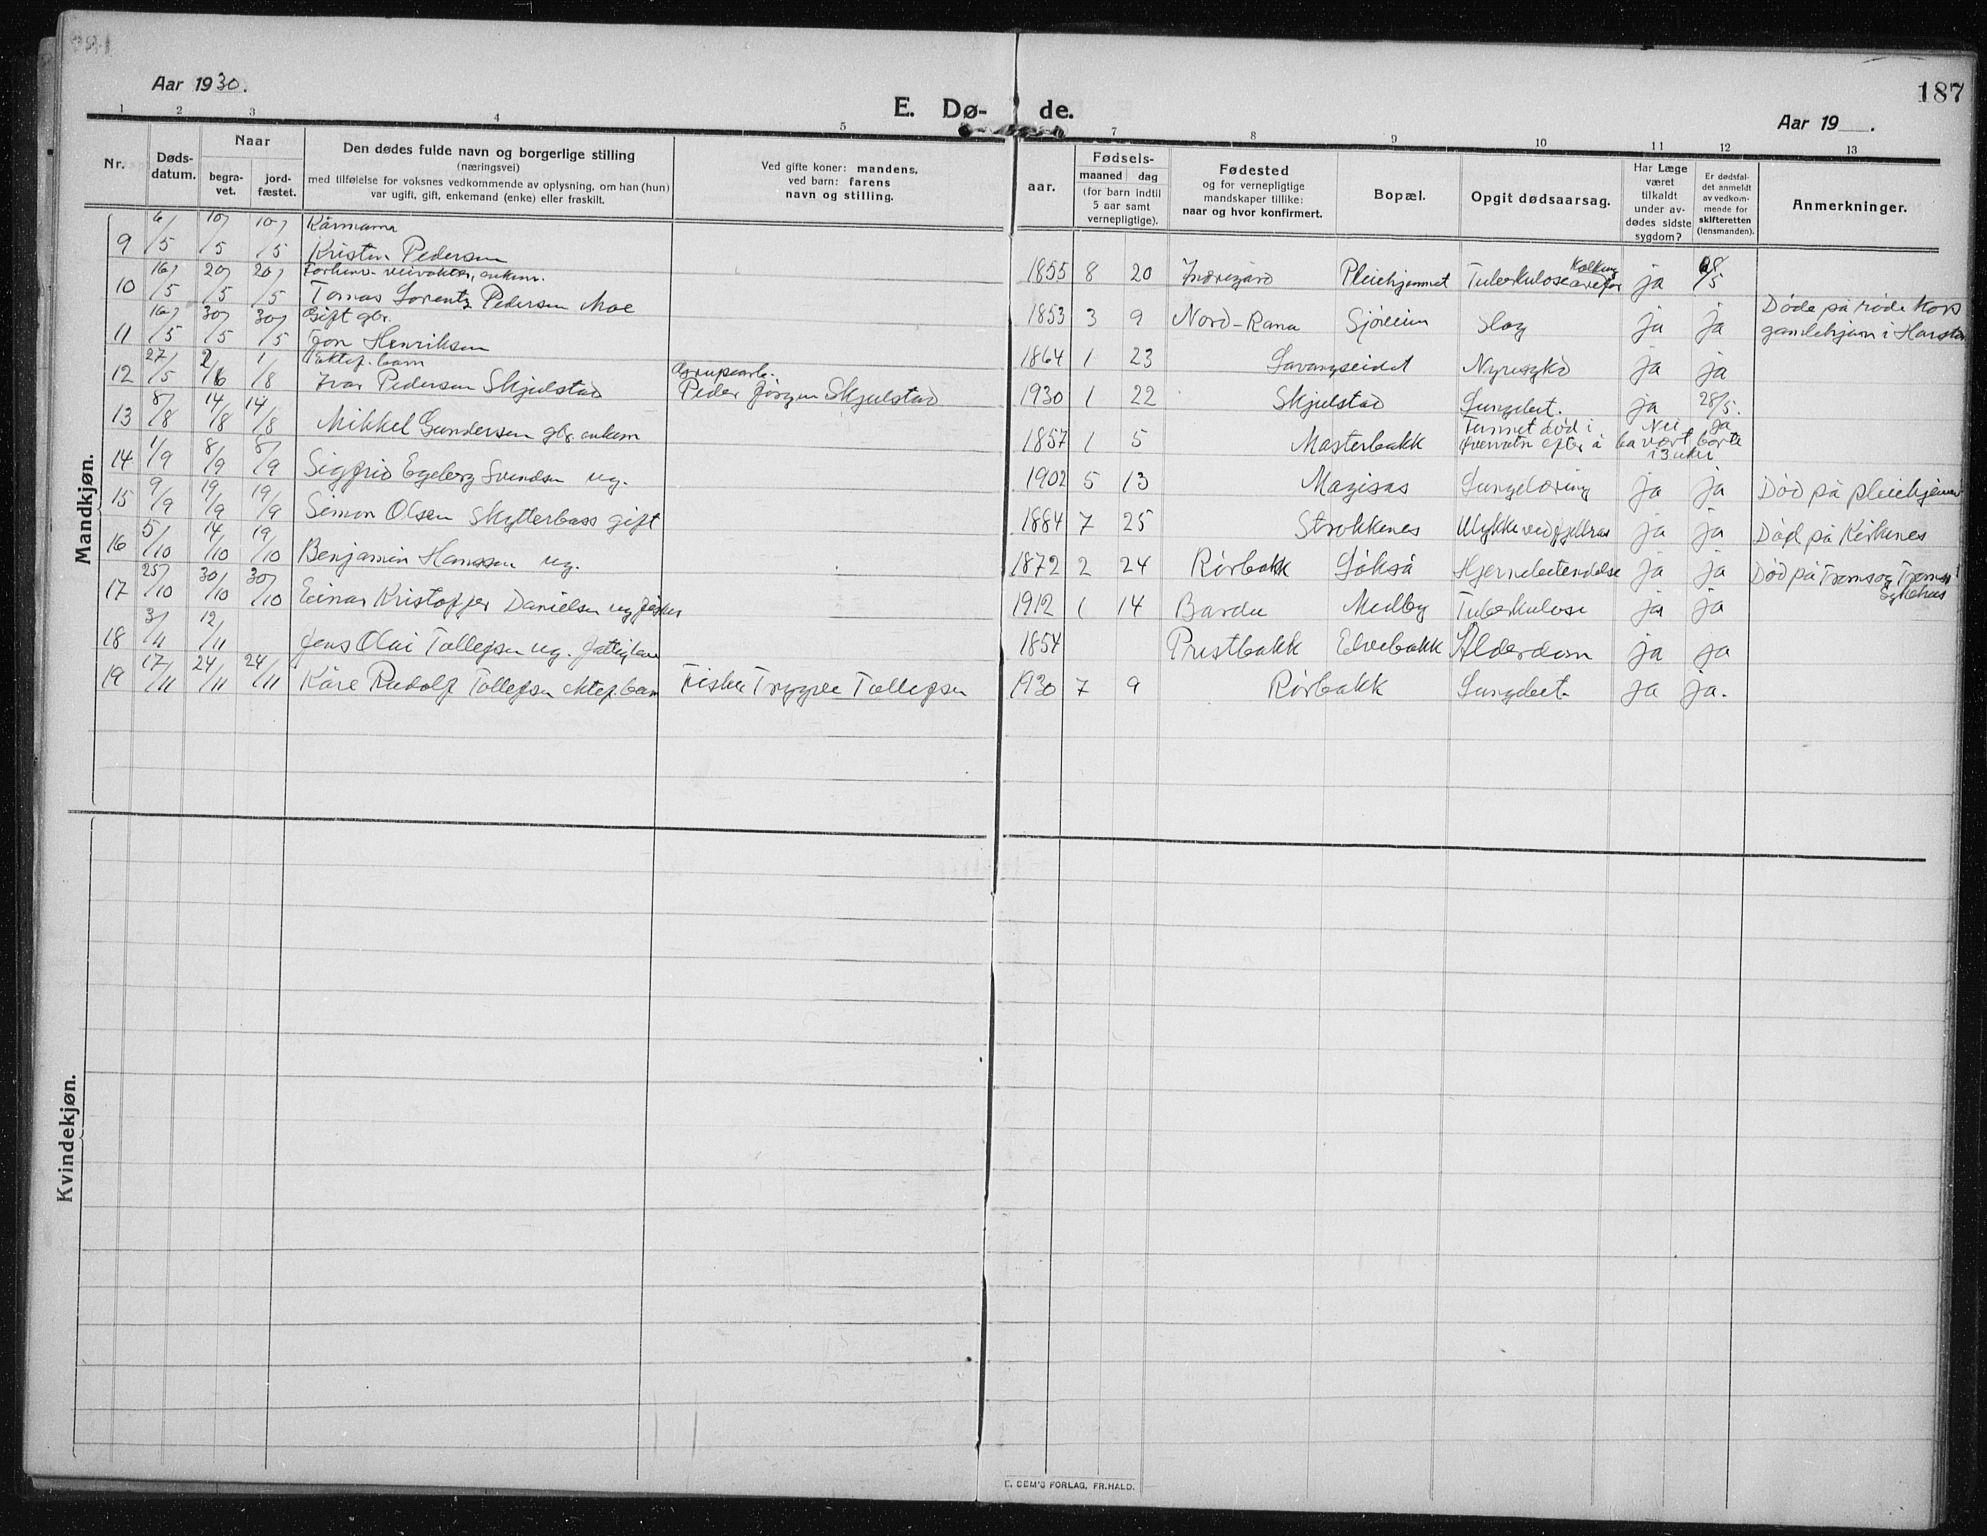 187
Aar 1930.
E. Dø- de.
Aar 19 .
1 2 3 4 5 7 8 9 10 11 12 13
Nr.
Døds-
datum.
Naar
begra-
vet.
jord-
fæstet.
Den dødes fulde navn og borgerlige stilling
(næringsvei)
med tilføielse for voksnes vedkommende av oplysning, om han (hun)
var ugift, gift, enkemand (enke) eller fraskilt.
Ved gifte koner: mandens,
ved barn: farens
navn og stilling.
aar.
Fødsels-
maaned dag
(for barn indtil
5 aar samt
vernepligtige).
Fødested
og for vernepligtige
mandskaper tillike:
naar og hvor konfirmert.
Bopæl.
Opgit dødsaarsag.
Har Læge
været
tilkaldt
under av-
dødes sidste
sygdom?
Er dødsfal-
det anmeldt
av vedkom-
mende for
skifteretten
(lensmanden).
Anmerkninger.
Mandkjøn.
9 6/5 10/5 10/5 Kårmann
Kristen Pedersen 1855 8 20 Pleiehjemmet Tuberkulose ja /5
10 16/5 20/5 20/5 Forhenv. veivokter, enkem.
Tomas Lorentz Pedersen Moe 1853 3 9 Nord-Rana Sjøveien Slag ja ja Døde på røde Kors
gamlehjem i Harstad
11 16/5 30/5 30/5 Gift gbr.
Jon Henriksen 1864 1 23 Lavangseidet Nyresykd ja ja
12 27/5 2/6 1/8 Ektef. barn
Ivar Pedersen Skjelstad Peder Jörgen Skjelstad 1930 1 22 Skjelstad Lungebet. ja 28/5.
13 8/8 14/8 14/8 Mikkel Gundersen gbr. enkem 1857 1 5 Masterbakk Funnet död i
efter å ha vært borte
i 3 uker Nei ja
14 1/9 8/9 8/9 Sigfrid Egeberg Svendsen ug. 1902 5 13 Magisas Lungetæring ja ja Død på pleiehjemmet
15 9/9 19/9 19/9 Simon Olsen Skytterbass gift 1884 7 25 Strokkenes Ulykke ved fjellras ja ja Død på Kirkenes
16 5/10 14/10 19/10 Benjamin Hanssen ug. 1872 2 24 Rörbakk Lökså Hjernebetendelse ja ja Død på Tromsø Tromsø
Sykehus
17 25/10 30/10 30/10 Einar Kristoffer Danielsen ug fisker 1912 1 14 Bardu Medby Tuberkulose ja ja
18 3/11 12/11 Jens Olai Tollefsen ug. fattiglem 1854 Prestbakk Elvebakk Alderdom ja ja
19 17/11 24/11 24/11 Kåre Rudolf Tollefsen ektef. barn Fisker Trygve Tollefsen 1930 7 9 Rörbakk Lungebet. ja ja.
Kvindekjøn.
E. SEM'S FORLAG, FR.HALD.